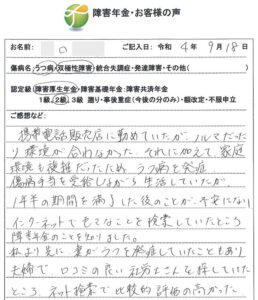 障害年金・お客様の声
お名前: ○ ご記入日: 令和 4 年 9 月 18 日
傷病名: うつ病・双極性障害・統合失調症・発達障害・その他( )
認定級: 障害厚生年金・障害基礎年金・障害共済年金
1級、2級、3級 遡り・事後重症(今後の分のみ)・額改定・不服申立
ご感想など:
携帯電話販売店に勤めていたが、ノルマだった
り環境が合わなかった。それに加えて、家庭
環境も複雑だったため、うつ病を発症。
傷病手当を受給しながら生活していたが、
1年半の期間を満了した後のことが、不安になり
インターネットで色々なことを検索していたところ
障害年金のことを知りました。
私より先に妻がうつを発症していたこともあり
夫婦で、口コミの良い社労士さんを探していた
ところ、ネット検索で比較的評価の高かった